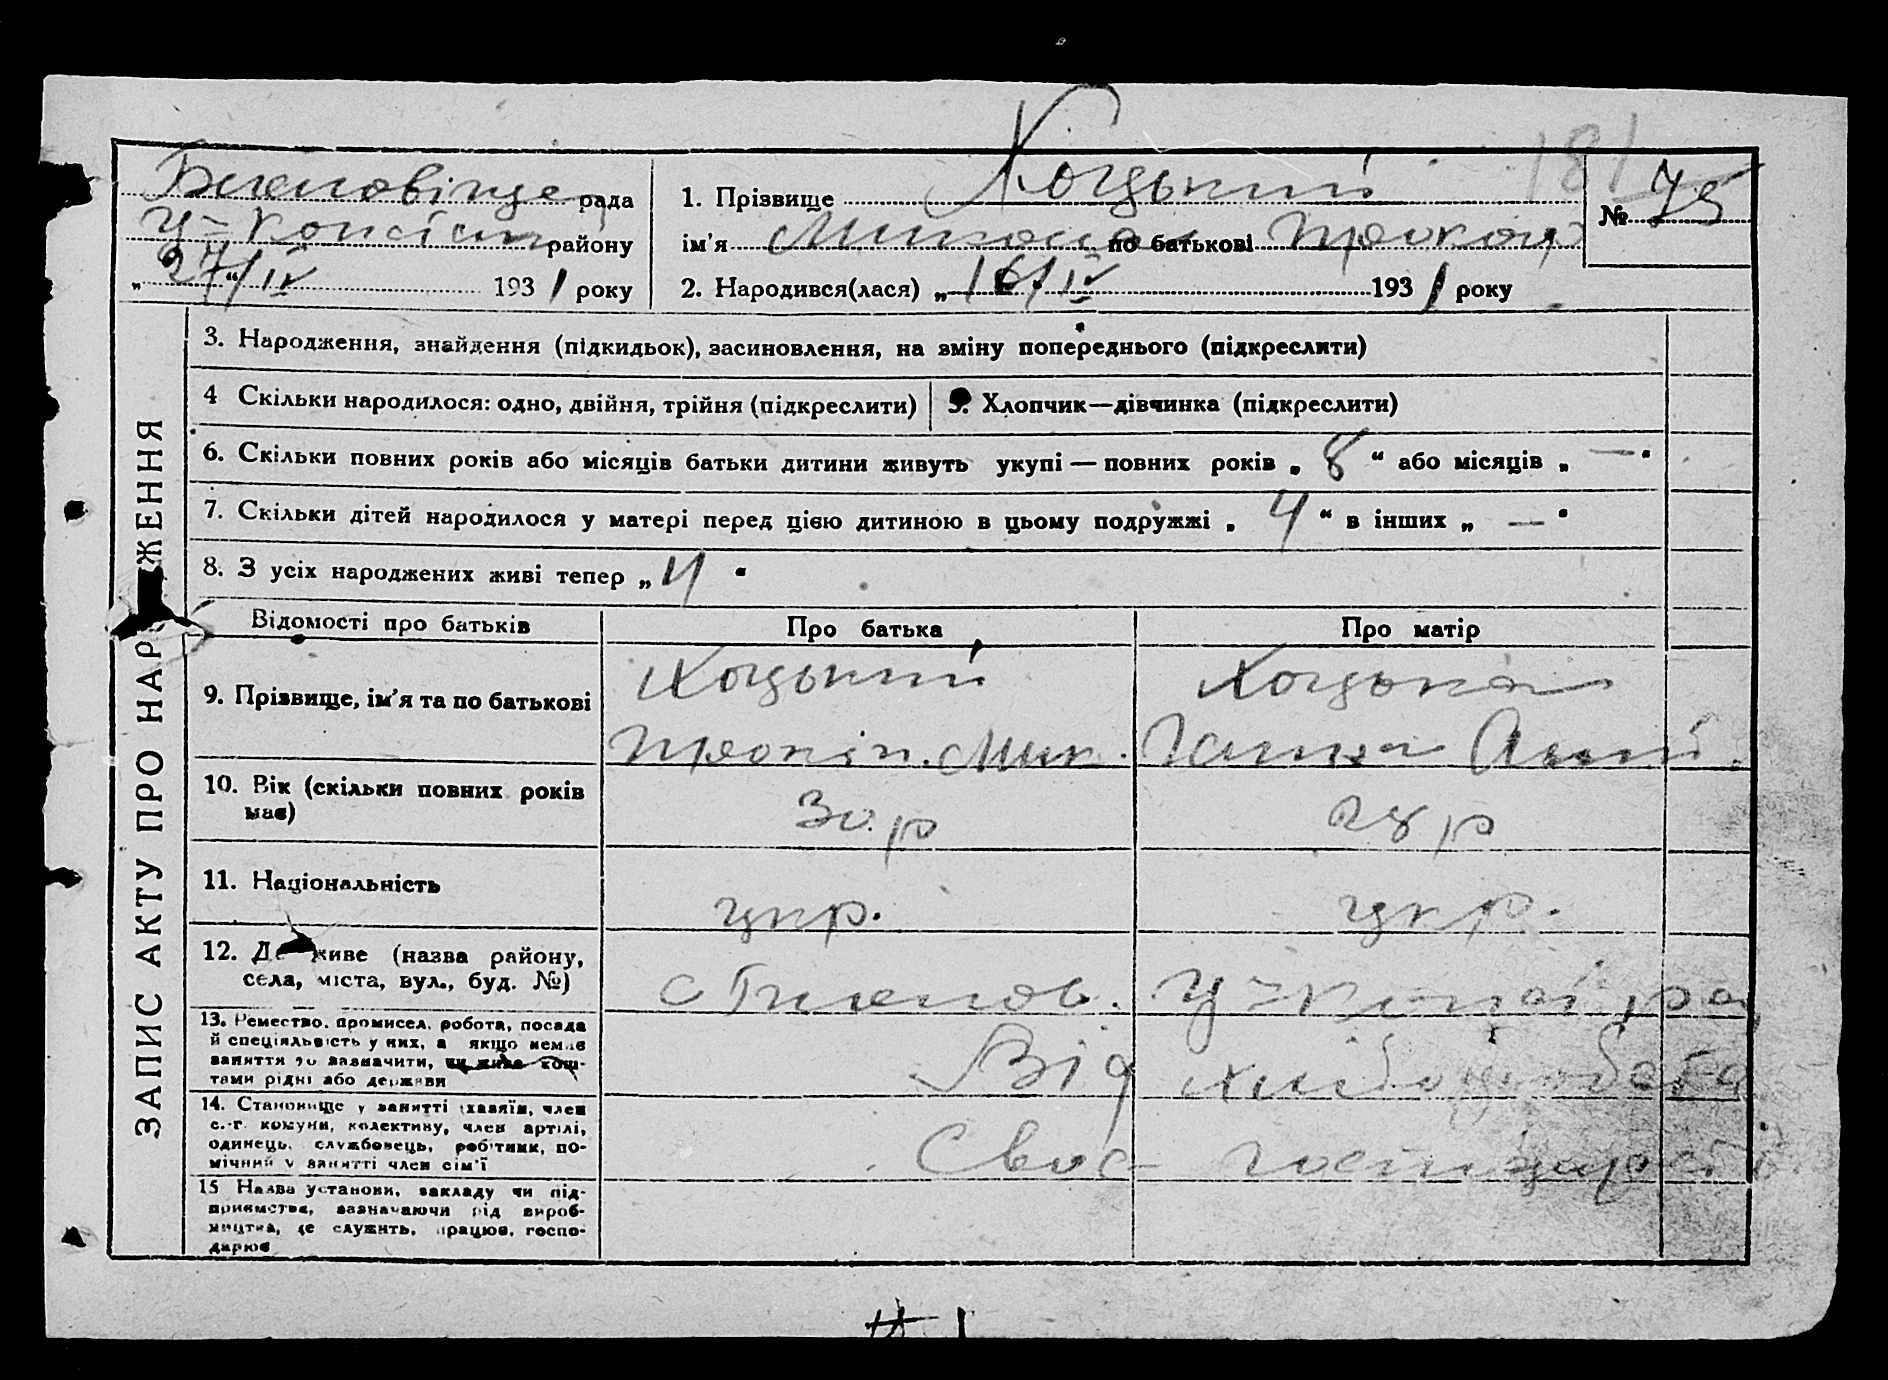 181
рада
району
„27“/IV 1931 року
1. Прізвище Хоцький
ім'я Микола по батькові Проков
№ 75
2. Народився(лася) „16/IV 1931 року
ЗАПИС АКТУ ПРО НАР ЖЕННЯ
3. Народження, знайдення (підкидьок), засиновлення, на зміну попереднього (підкреслити)
4 Скільки народилося: одно, двійня, трійня (підкреслити)
5. Хлопчик—дівчинка (підкреслити)
6. Скільки повних років або місяців батьки дитини живуть укупі — повних років „ 8 “ або місяців „ — “
7. Скільки дітей народилося у матері перед цією дитиною в цьому подружжі „ 4 “ в інших „ — “
8. З усіх народжених живі тепер „ 4 “
Відомості про батьків Про батька Про матір
9. Прізвище, ім'я та по батькові
Хоцький Хоцька
Прокіп. Мик. Ганна Ант.
10. Вік (скільки повних років
має)
30 р 28 р
11. Національність
укр. укр.
12. Де живе (назва району,
села, міста, вул., буд. №)
с
13. Ремество, промисел, робота, посада
й спеціяльність у них, а якщо немає
заняття то зазначити, чи живе кош-
тами рідні або держави
Від хлібороб
14. Становище у занятті (хазяїн, член
с.-г. комуни, колективу, член артілі,
одинець, службовець, робітник, по-
мічний у занятті член сім'ї
Своє господарство
15 Назва установи, закладу чи під-
приємства, зазначаючи рід вироб-
ництва, де служить, працює, госпо-
дарює